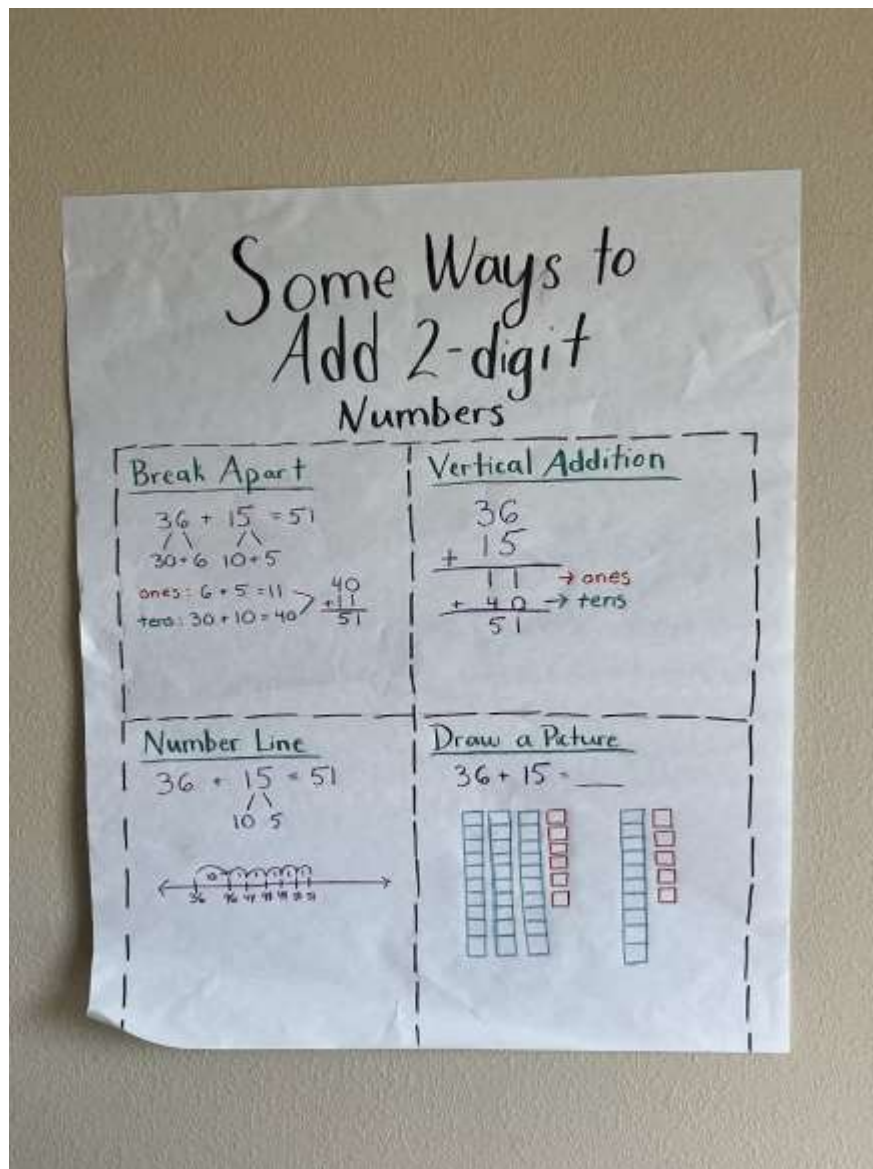 Some Ways to
Add 2-digit
Numbers
Break Apart
36 + 15 = 51
30+6 10+5
ones: 6 + 5 = 11
tens: 30 + 10 = 40
40
+11
51
Vertical Addition
36
+ 15
11 → ones
+ 40 → tens
51
Number Line
36 + 15 = 51
10 5
10 1 1 1 1 1
36 46 47 48 49 50 51
Draw a Picture
36 + 15 = ___